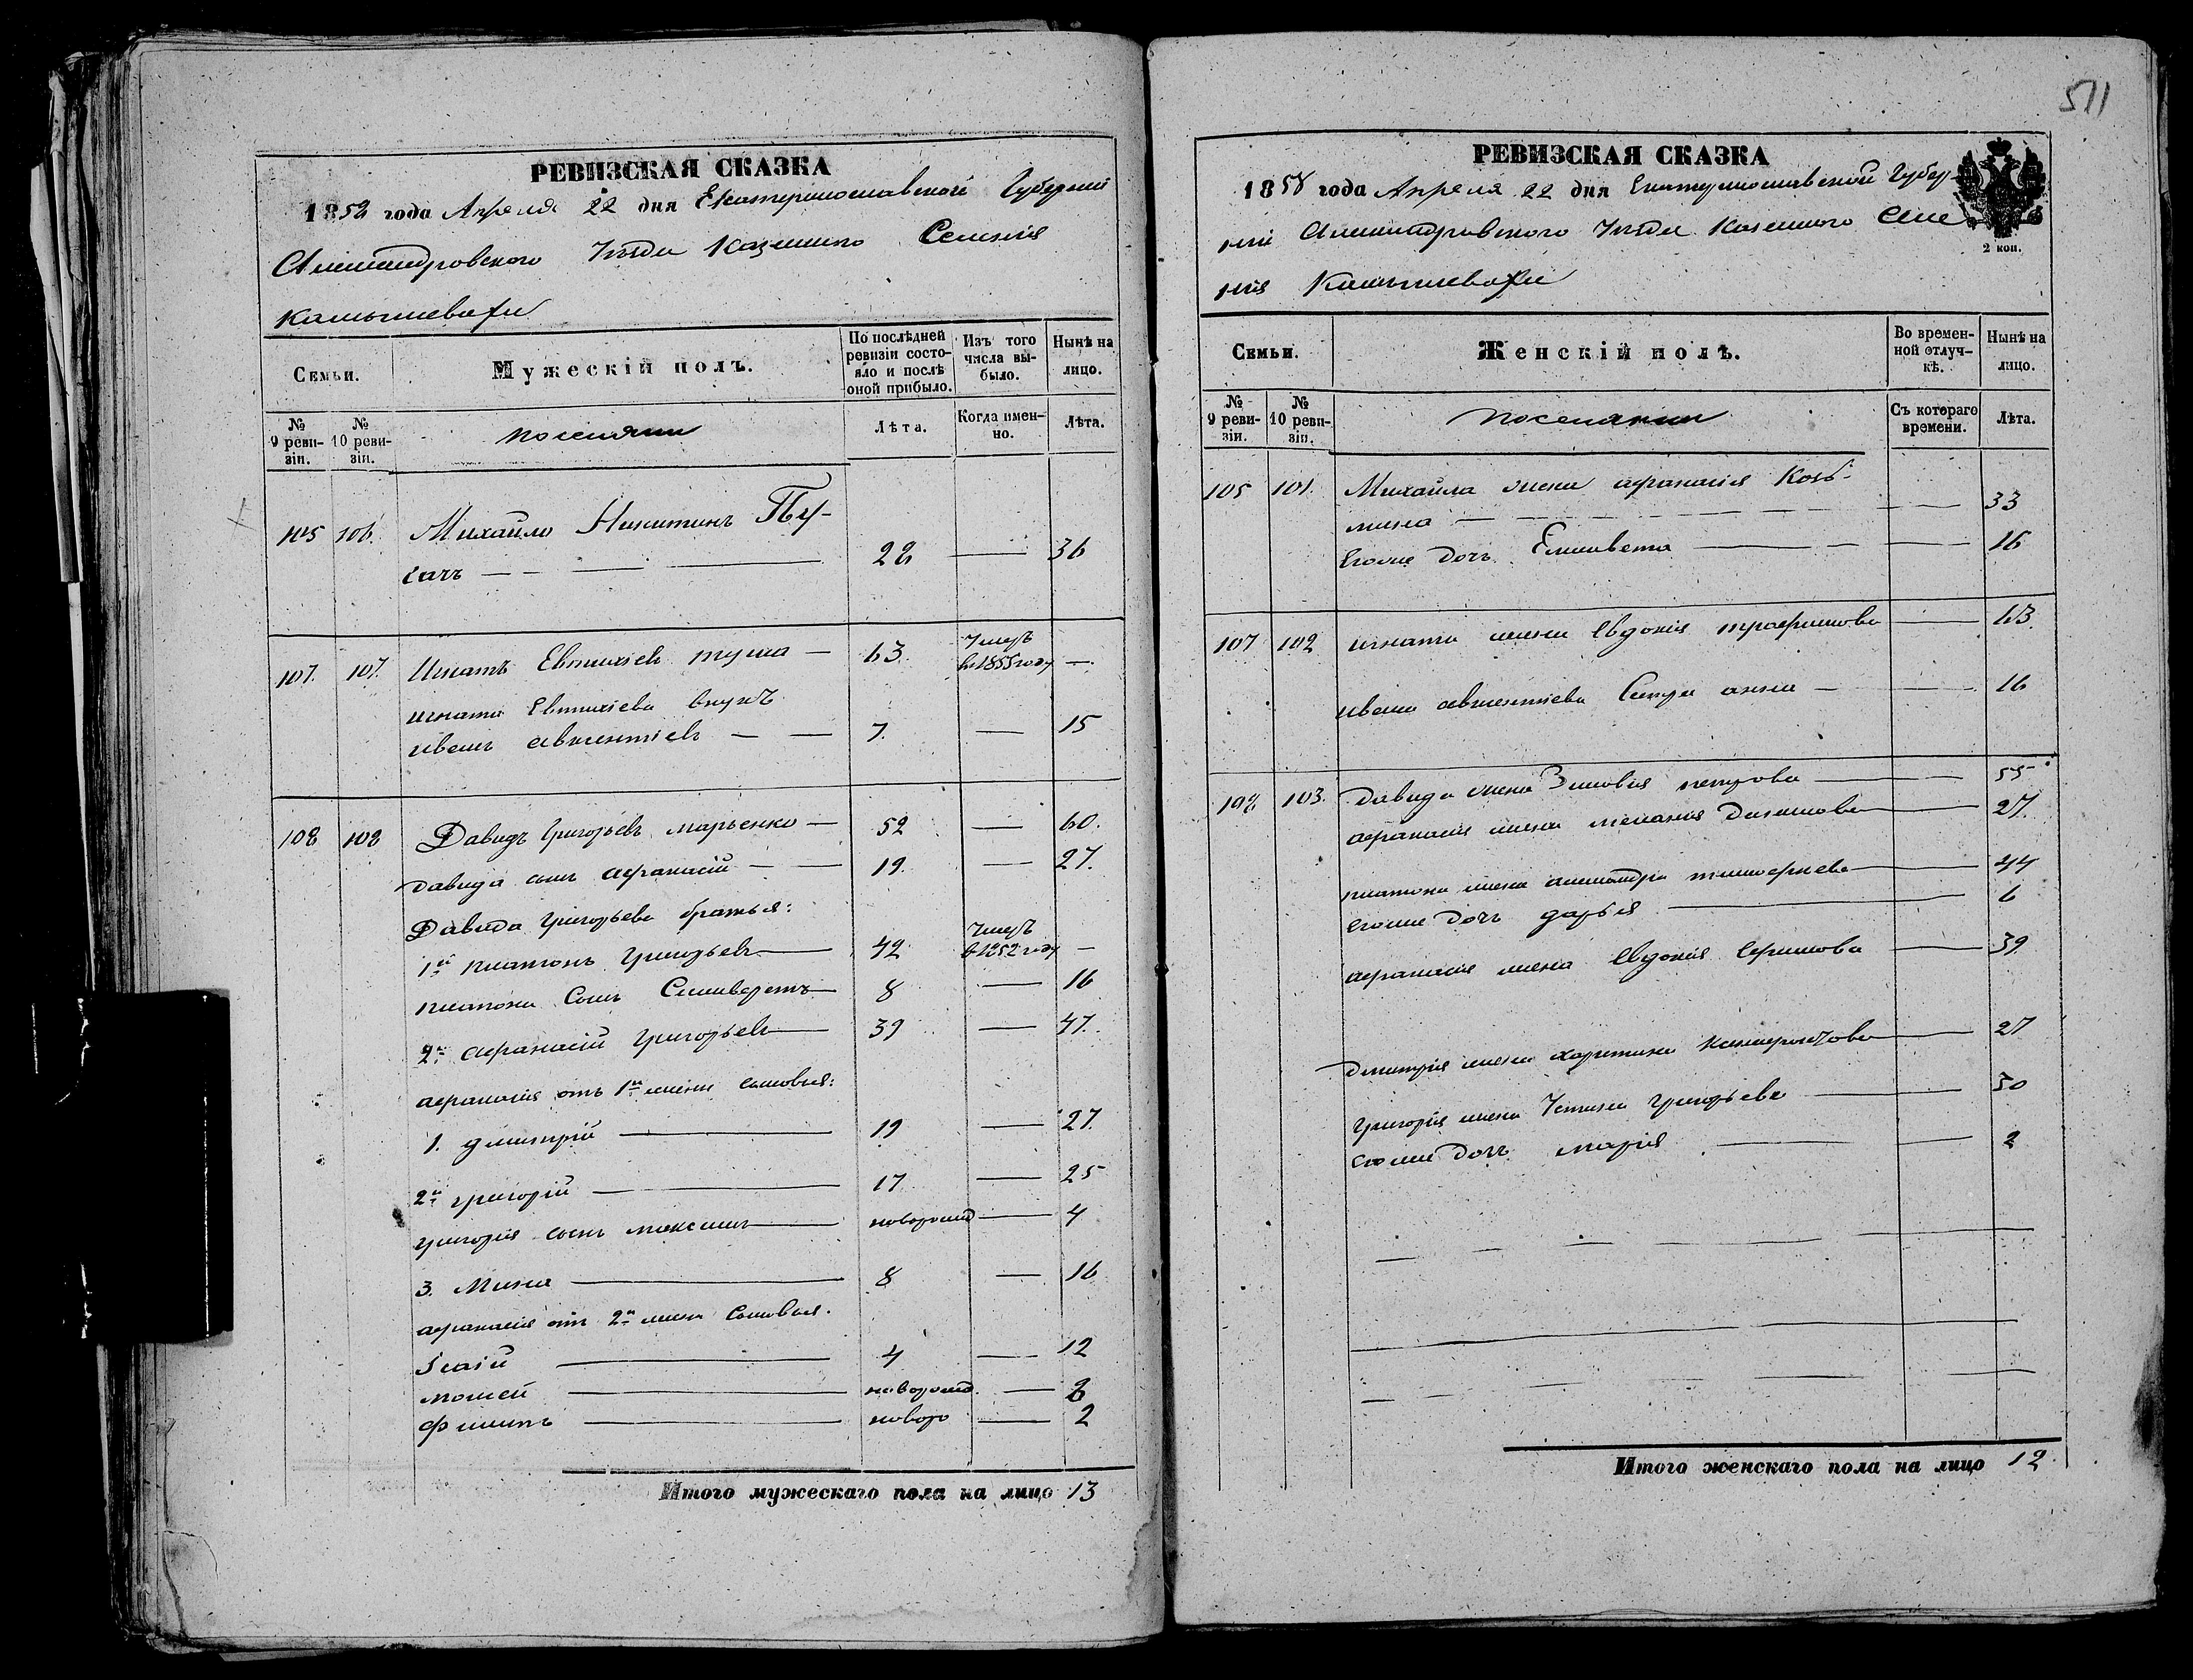 511
РЕВИЗСКАЯ СКАЗКА
1858 года Апреля 22 дня Екатеринославской Губернии
Александровского Уезда Казенного Селения
Камышевахи
Семьи.
Мужескій полъ.
По послѣдней ревизіи состояло и послѣ оной прибыло.
Изъ того числа выбыло.
Нынѣ на лицо.
№ 9 ревизіи.
№ 10 ревизіи.
поселяни
Лѣта.
Когда именно.
Лѣта.
105 106. Михайло Никитинъ Пу-
гачъ 28 — 36
107. 107. Игнатъ Евтихіевъ 63. Умеръ в 1855 году —
Игната Евтихіева внукъ
иванъ авксентіевъ — 7. — 15
108 108 Давидъ Григорьевъ марьенко — 52 — 60.
Давида сынъ афанасій — 19. — 27.
Давида Григорьева братья:
1й платонъ Григорьевъ 42 Умеръ в 1852 году —
платона Сынъ Селиверстъ 8 — 16
2й афанасій Григорьевъ 39 — 47.
афанасія отъ 1й жены сыновья:
1. дмитрій 19 — 27.
2й григорій 17 — 25
григорія сынъ максимъ новорожд — 4
3. Мина 8 — 16
афанасія отъ 2й жены Сыновья.
Ісаій 4 — 12
моисей новорожд. —
Филипъ новоро — 2
Итого мужескаго пола на лицо 13
РЕВИЗСКАЯ СКАЗКА
1858 года Апреля 22 дня Екатеринославской Губер-
ніи Александровского Уезда Казенного Селе
нія Камышевахи
2 коп.
Семьи.
Женскій полъ.
Во временной отлучкѣ.
Нынѣ на лицо.
№ 9 ревизіи.
№ 10 ревизіи.
поселянки
Съ котораго времени.
Лѣта.
105 101. Михайла жена афанасія Козь-
мина — 33
Егоже дочь Елисавета — 16
107 102 игната жена Евдокія трофимова — 63
ивана авксентіева Сестра анна — 16
108 103. Давида жена Зиновія петрова — 55
афанасія жена меланія Данилова — 27.
платона жена александра тимофеева — 44
егоже дочь дарья — 6
афанасія жена Евдокія Ефимова — 39
Дмитрія жена харитина — 27
григорія жена Устинья григорьева — 30
егоже дочь марія — 2
Итого женскаго пола на лицо 12.